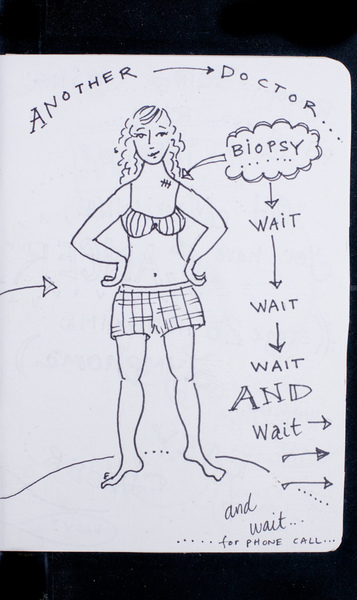 ANOTHER → DOCTOR....
BIOPSY
WAIT
WAIT
WAIT
AND
Wait →
and
wait...
..... for PHONE CALL...